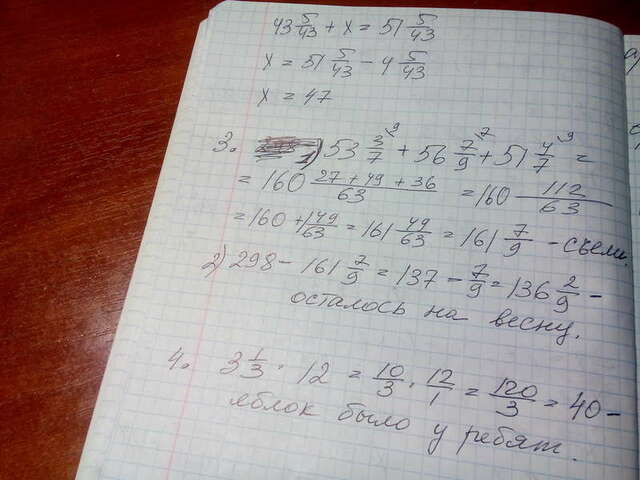 43 5/43 + x = 51 5/43
x = 51 5/43 - 4 5/43
x = 47
3. 1) 53 3/7 ⁹ + 56 7/9 ⁷ + 51 4/7 ⁹ =
= 160 27 + 49 + 36/63 = 160 112/63
= 160 + 1 49/63 = 161 49/63 = 161 7/9 - съели.
2) 298 - 161 7/9 = 137 - 7/9 = 136 2/9 -
осталось на весну.
4. 3 1/3 · 12 = 10/3 · 12/1 = 120/3 = 40 -
яблок было у ребят.